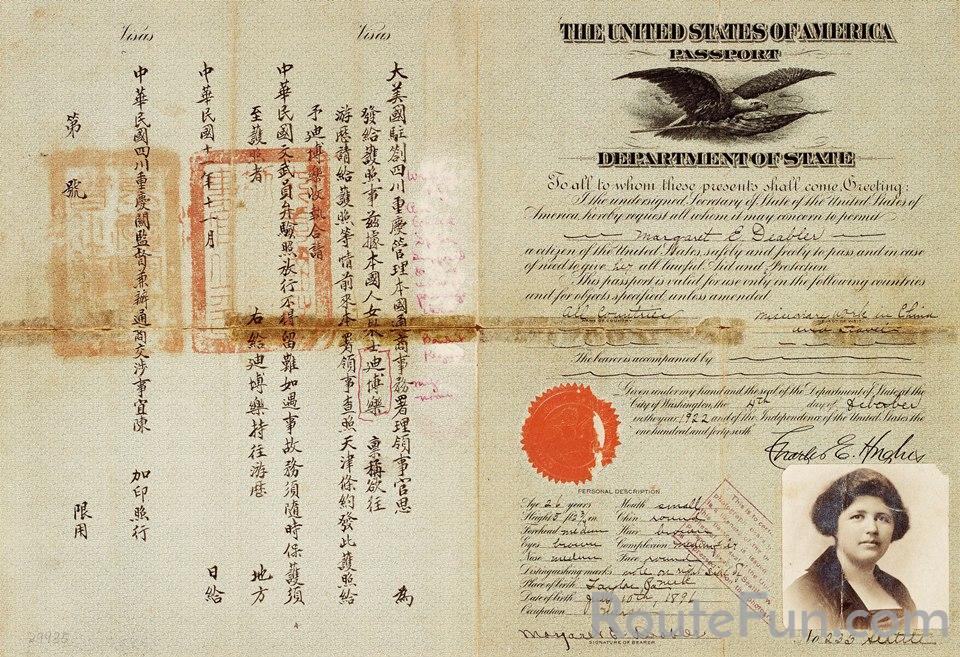 Visas
Visas
大美國駐劄四川重慶管理本國通商事務署理領事官思 為
發給護照事茲據本國人女士迪博樂 稟稱欲往
游歷請給護照等情前來本署領事查照天津條約發此護照給
予迪博樂收執合請
中華民國文武員弁驗照放行不得留難如遇事故務須隨時保護須
至護照者 右給迪博樂持往游歷 地方
中華民國十一年十一月 日給
中華民國四川重慶關監督兼辦通商交涉事宜陳 加印照行
第 號 限用
29935
THE UNITED STATES OF AMERICA
PASSPORT
DEPARTMENT OF STATE
To all to whom these presents shall come, Greeting:
I the undersigned Secretary of State of the United States of
America, hereby request all whom it may concern to permit
Margaret E. Deabler
a citizen of the United States, safely and freely to pass and in case
of need to give her all lawful Aid and Protection.
This passport is valid for use only in the following countries
and for objects specified, unless amended
All Countries Missionary Work in China
and Travel
The bearer is accompanied by
Given under my hand and the seal of the Department of State, at the
City of Washington, the 4th day of October
in the year 1922 and of the Independence of the United States the
one hundred and forty sixth
Charles E. Hughes
PERSONAL DESCRIPTION
Age 26 years Mouth small
Height 5 ft Chin round
Forehead medium Hair brown
Eyes brown Complexion
Nose medium Face round
Distinguishing marks
Place of birth
Date of birth July 10th, 1896
Occupation
Margaret E. Deabler
SIGNATURE OF BEARER
No 232 Seattle
RouteFun.com